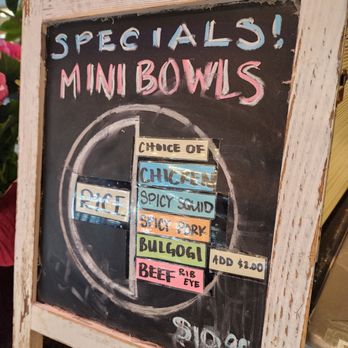 SPECIALS!
MINI BOWLS
RICE
CHOICE OF
CHICKEN
SPICY SQUID
SPICY PORK
BULGOGI
BEEF RIB EYE
ADD $2.00